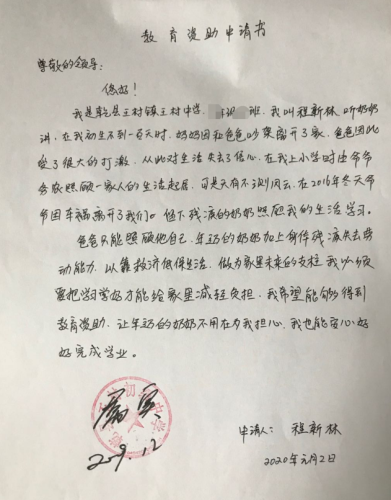 教育资助申请书
尊敬的领导:
您好!
我是乾县王村镇王村中学, 班,我叫程新林,听奶奶
讲,在我初生不到一百天时,奶奶因和爸爸吵架离开了家,爸爸因此
受了很大的打激,从此对生活失去了信心,在我上小学时由爷爷
务农照顾一家人的生活起居,可是天有不测风云,在2016年冬天爷
爷因车祸离开了我们。但不残演的奶奶照顾我的生活学习。
爸爸只能照顾他自己,年迈的奶奶加上身体残疾失去劳
动能力,以靠救济低保生活,做为家里未来的支柱,我必须
要把学习学好才能给家里减轻负担,我希望能够得到
教育资助,让年迈的奶奶不用在为我担心,我也能安心好
好完成学业。
属实
2019.12
申请人: 程新林
2020年元月2日